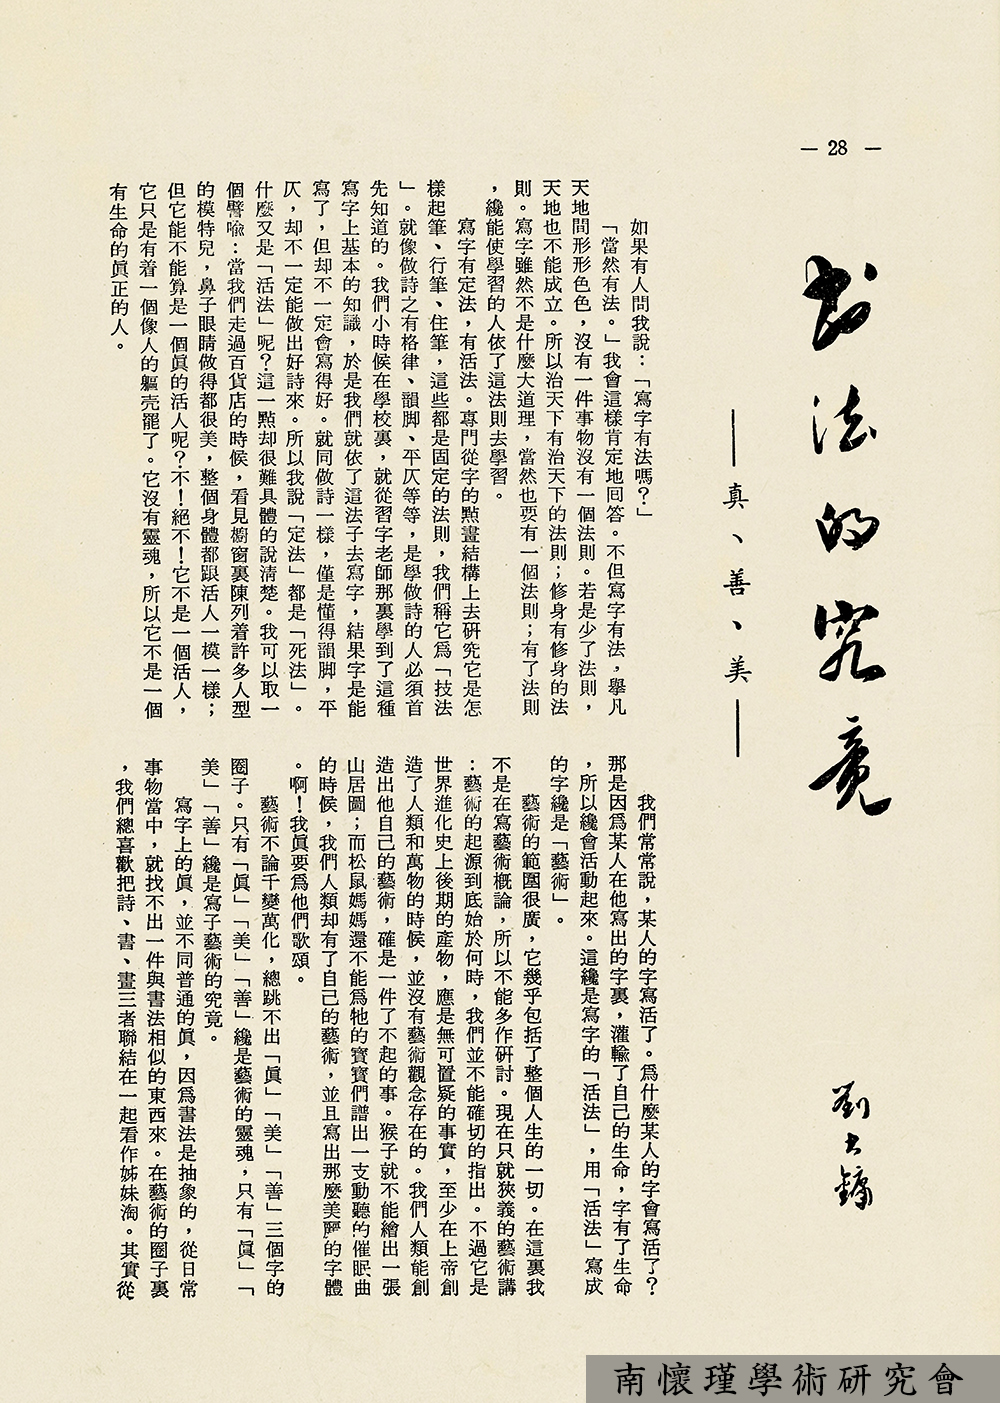 — 28 —
书法的究竟
——真、善、美——
劉大鏞
如果有人問我說：「寫字有法嗎？」
「當然有法。」我會這樣肯定地回答。不但寫字有法，擧凡
天地間形形色色，沒有一件事物沒有一個法則。若是少了法則，
天地也不能成立。所以治天下有治天下的法則；修身有修身的法
則。寫字雖然不是什麼大道理，當然也要有一個法則；有了法則
，纔能使學習的人依了這法則去學習。
寫字有定法，有活法。專門從字的點畫結構上去硏究它是怎
樣起筆、行筆、住筆，這些都是固定的法則，我們稱它爲「技法
」。就像做詩之有格律、韻脚、平仄等等，是學做詩的人必須首
先知道的。我們小時候在學校裏，就從習字老師那裏學到了這種
寫字上基本的知識，於是我們就依了這法子去寫字，結果字是能
寫了，但却不一定會寫得好。就同做詩一樣，僅是懂得韻脚，平
仄，却不一定能做出好詩來。所以我說「定法」都是「死法」。
什麼又是「活法」呢？這一點却很難具體的說清楚。我可以取一
個譬喩：當我們走過百貨店的時候，看見橱窗裏陳列着許多人型
的模特兒，鼻子眼睛做得都很美，整個身體都跟活人一模一樣；
但它能不能算是一個眞的活人呢？不！絕不！它不是一個活人，
它只是有着一個像人的軀壳罷了。它沒有靈魂，所以它不是一個
有生命的眞正的人。
我們常常說，某人的字寫活了。爲什麼某人的字會寫活了？
那是因爲某人在他寫出的字裏，灌輸了自己的生命，字有了生命
，所以纔會活動起來。這纔是寫字的「活法」，用「活法」寫成
的字纔是「藝術」。
藝術的範圍很廣，它幾乎包括了整個人生的一切。在這裏我
不是在寫藝術概論，所以不能多作硏討。現在只就狹義的藝術講
：藝術的起源到底始於何時，我們並不能確切的指出。不過它是
世界進化史上後期的產物，應是無可置疑的事實，至少在上帝創
造了人類和萬物的時候，並沒有藝術觀念存在的。我們人類能創
造出他自己的藝術，確是一件了不起的事。猴子就不能繪出一張
山居圖；而松鼠媽媽還不能爲牠的寶寶們譜出一支動聽的催眠曲
的時候，我們人類却有了自己的藝術，並且寫出那麼美麗的字體
。啊！我眞要爲他們歌頌。
藝術不論千變萬化，總跳不出「眞」「美」「善」三個字的
圈子。只有「眞」「美」「善」纔是藝術的靈魂，只有「眞」「
美」「善」纔是寫子藝術的究竟。
寫字上的眞，並不同普通的眞，因爲書法是抽象的，從日常
事物當中，就找不出一件與書法相似的東西來。在藝術的圈子裏
，我們總喜歡把詩、書、畫三者聯結在一起看作姊妹淘。其實從
南懷瑾學術研究會